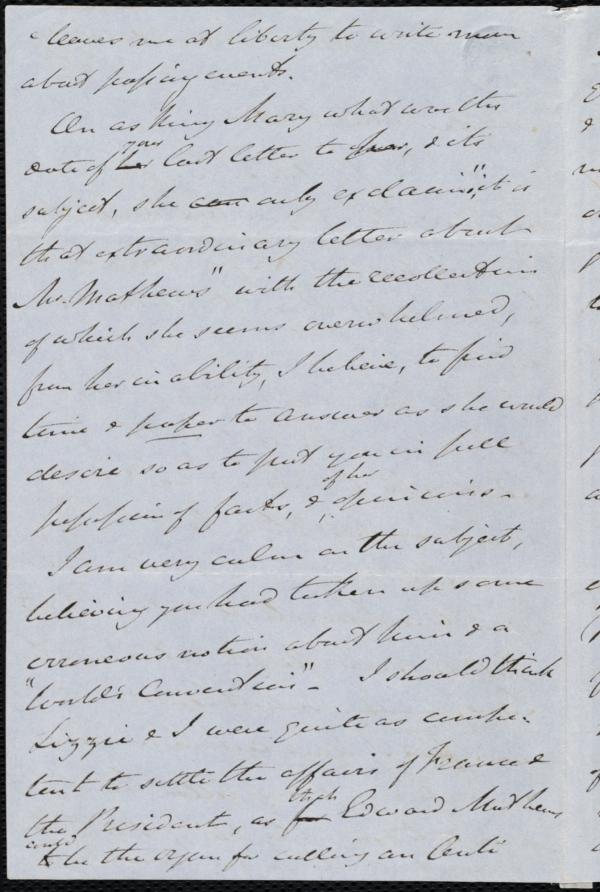 leaves me at liberty to write more
about passing events.
On asking Mary what was the
date of your last letter to her, & its
subject, she can only exclaim, "it is
that extraordinary letter about
Mr. Mathews" with the recollection
of which she seems overwhelmed,
from her inability, I believe, to find
time & paper to answer as she would
desire so as to put you in full
possession of facts, & of her opinions.
I am very calm on the subject,
believing you had taken up some
erroneous notion about him & a
"World's Convention". I should think
Lizzie & I were quite as compe-
tent to settle the affairs of France &
the President, as Edward Mathews
to be the organ for calling an Anti